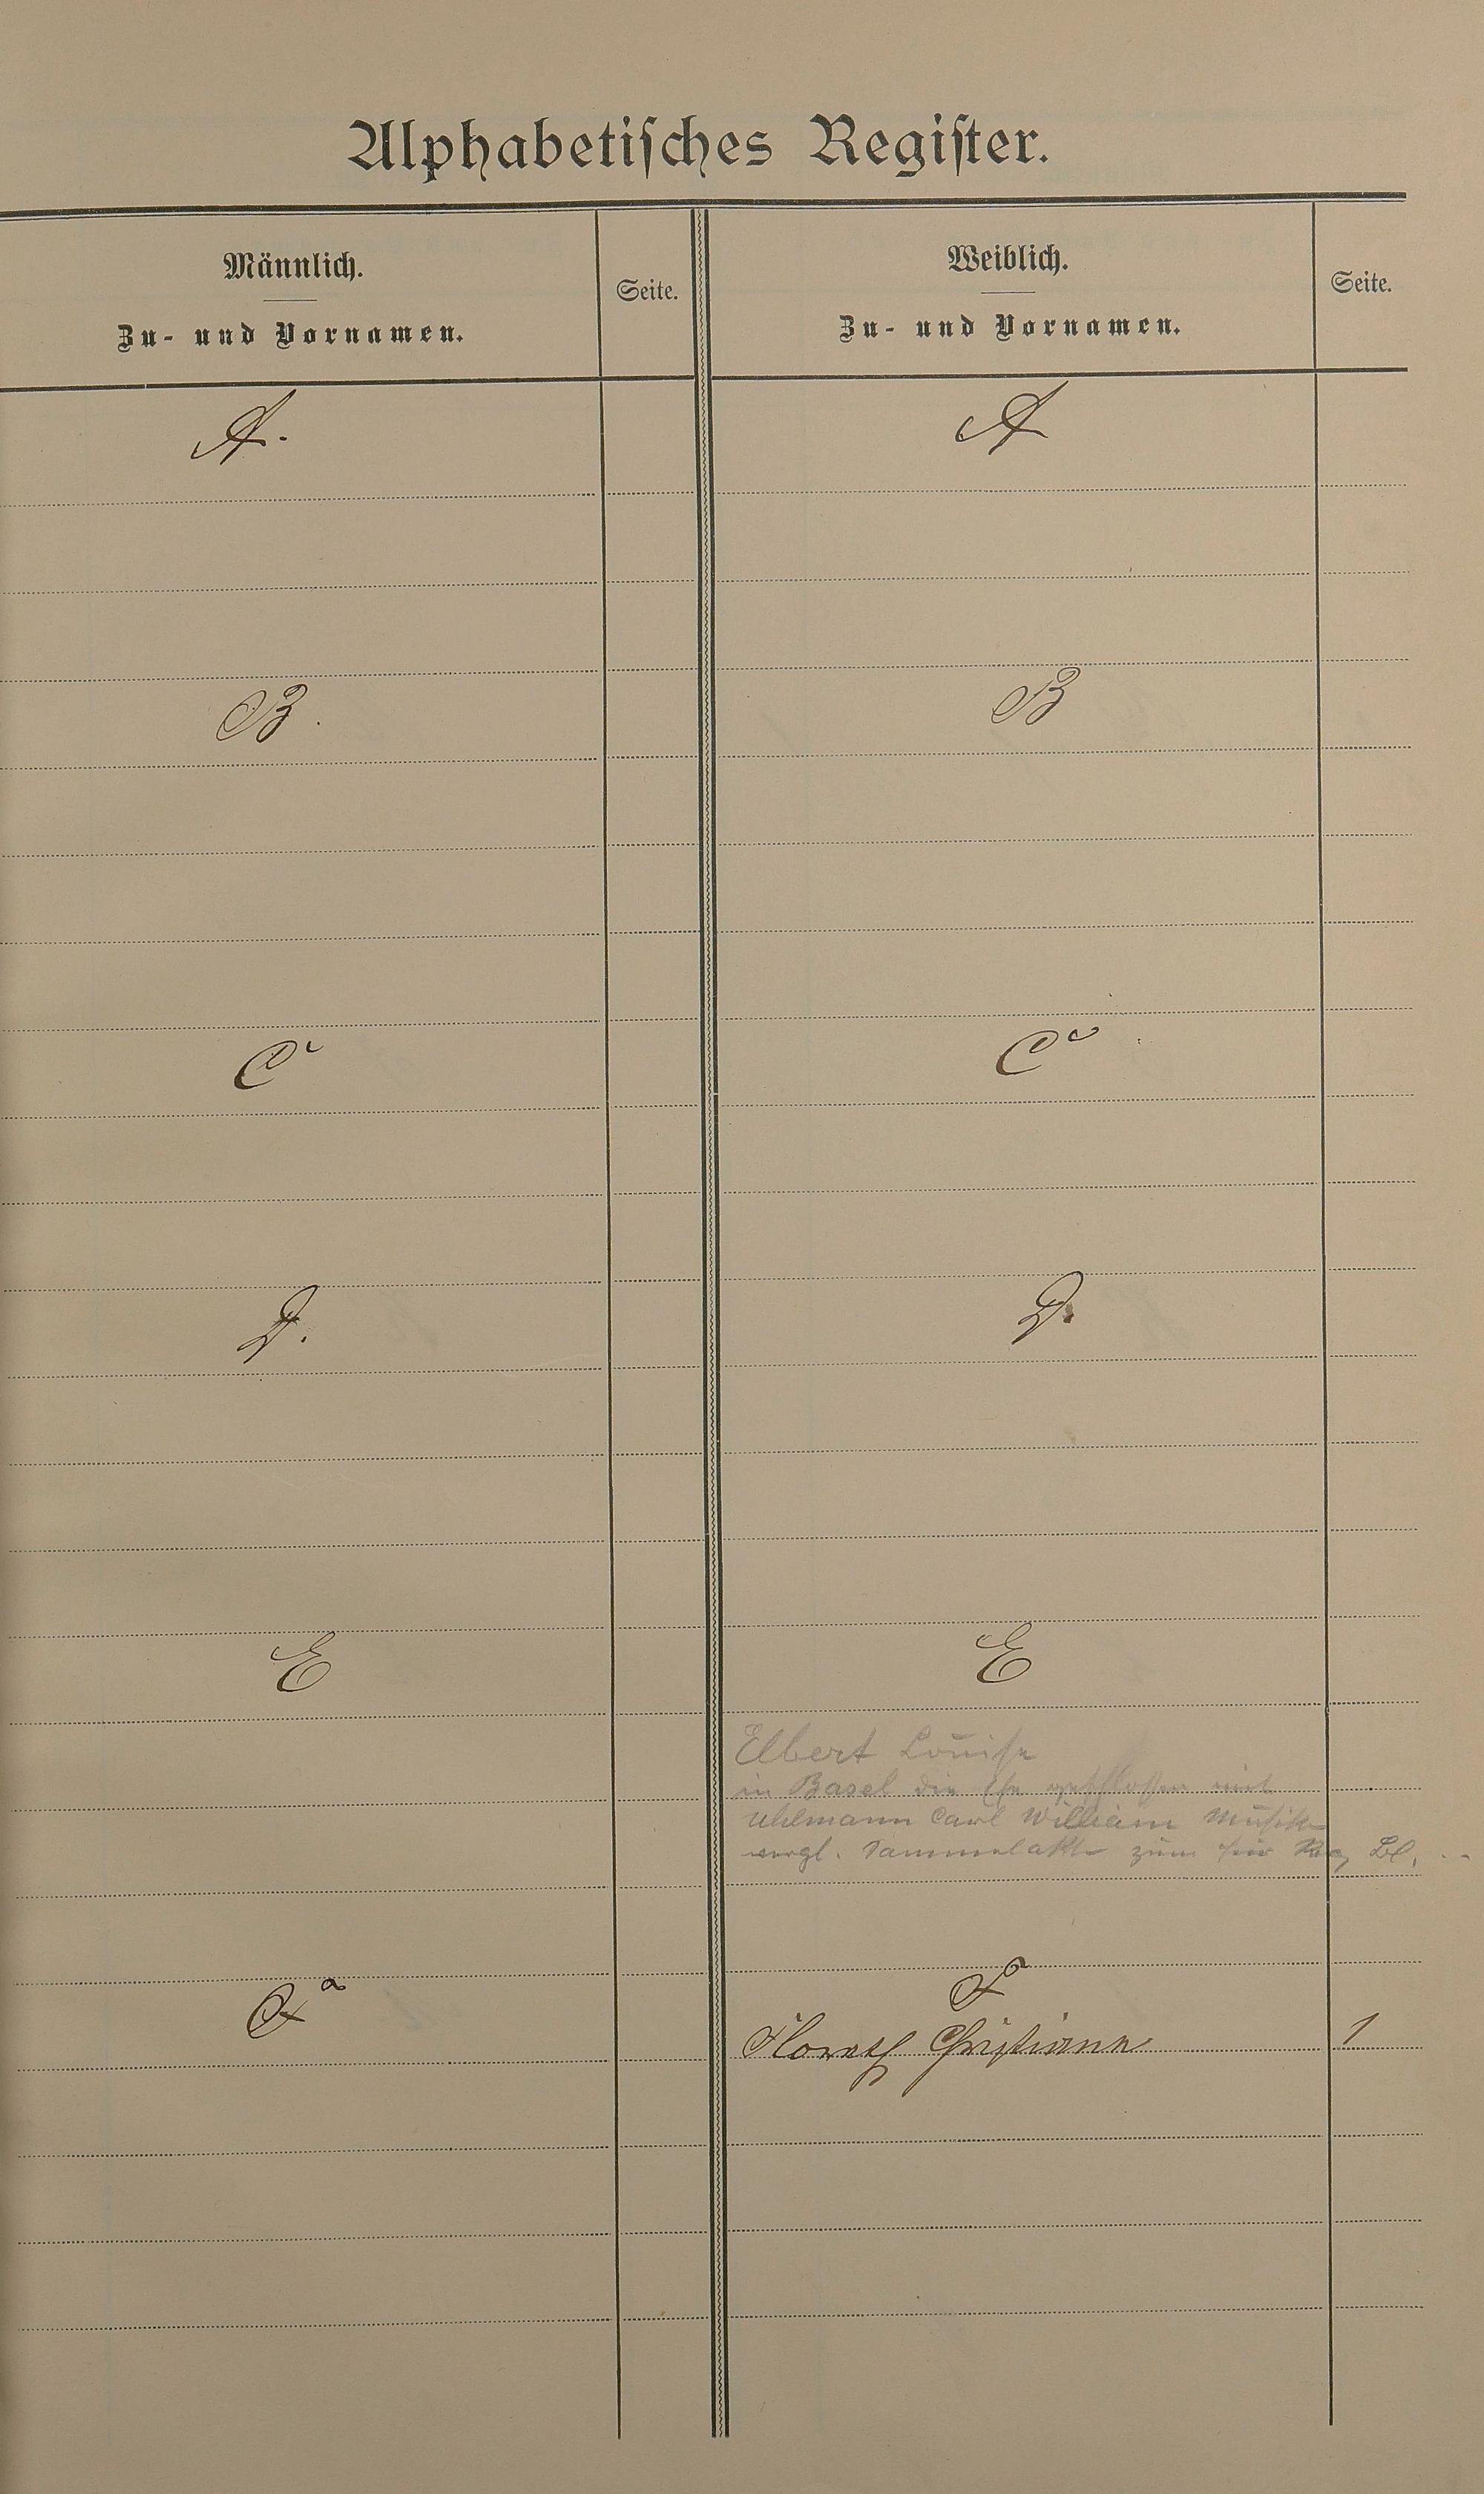 Alphabetisches Register.
Männlich.
Zu- und Vornamen.
Seite.
Weiblich.
Zu- und Vornamen.
Seite.
A.
A
B.
B
C
C
D.
D.
E
E
Elbert Louise
in Basel die Ehe geschlossen mit
Uhlmann Carl William Musik
vergl. Sammelakte zum Reg Bl.
F
F
Horath Christiane 1